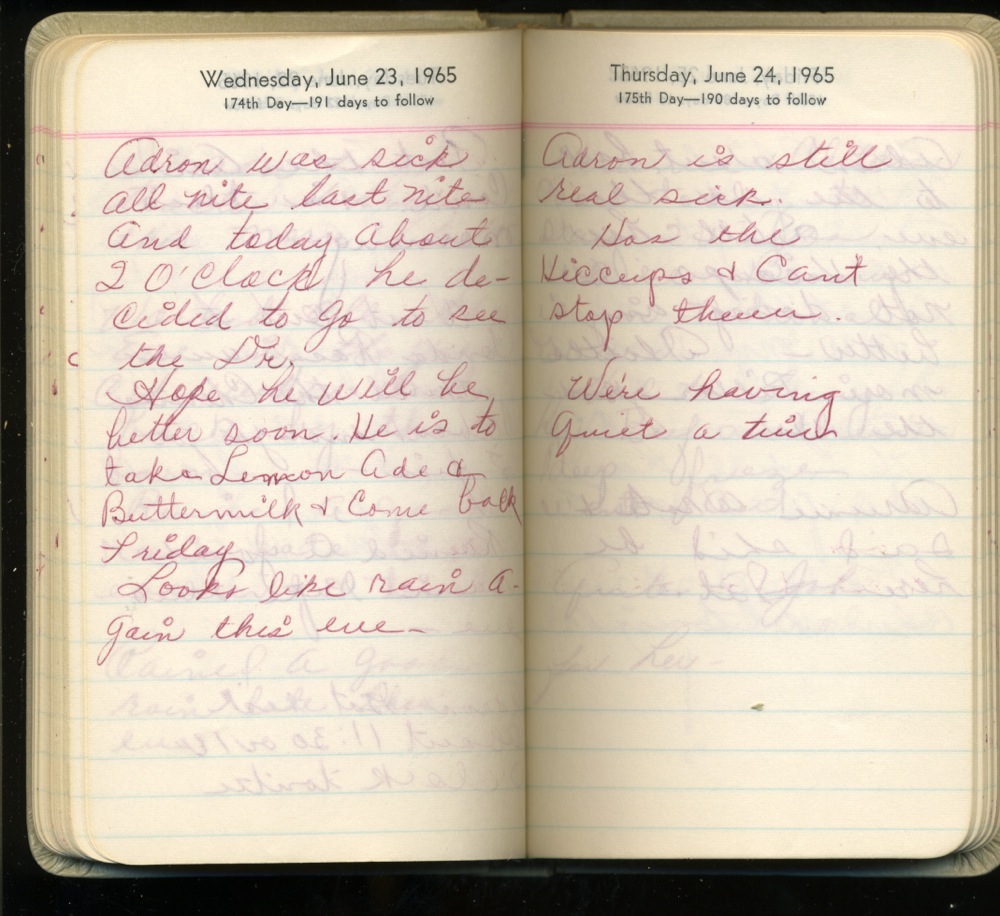 Wednesday, June 23, 1965
174th Day—191 days to follow
Adron was sick
all nite last nite
And today About
2 O'Clock he de-
cided to go to see
the Dr.
Hope he will be
better soon. He is to
take Lemon Ade &
Buttermilk & Come back
Friday
Looks like rain a-
gain this eve-
Thursday, June 24, 1965
175th Day—190 days to follow
Adron is still
real sick.
Has the
Hiccups & Cant
stop them.
We're having
Quiet a time
for her-